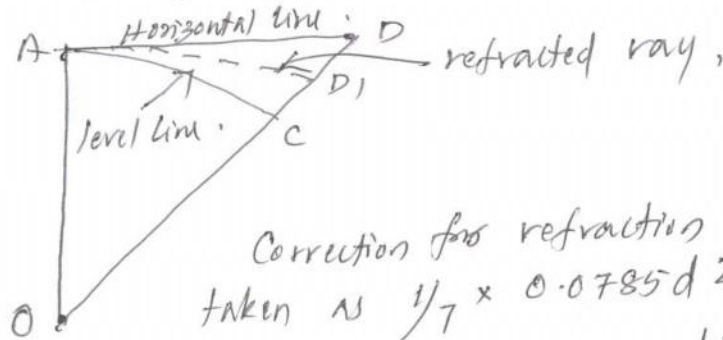 Horizontal line.
A D
refracted ray,
D1
level line.
C
Correction for refraction
taken as 1/7 × 0.0785d²
O